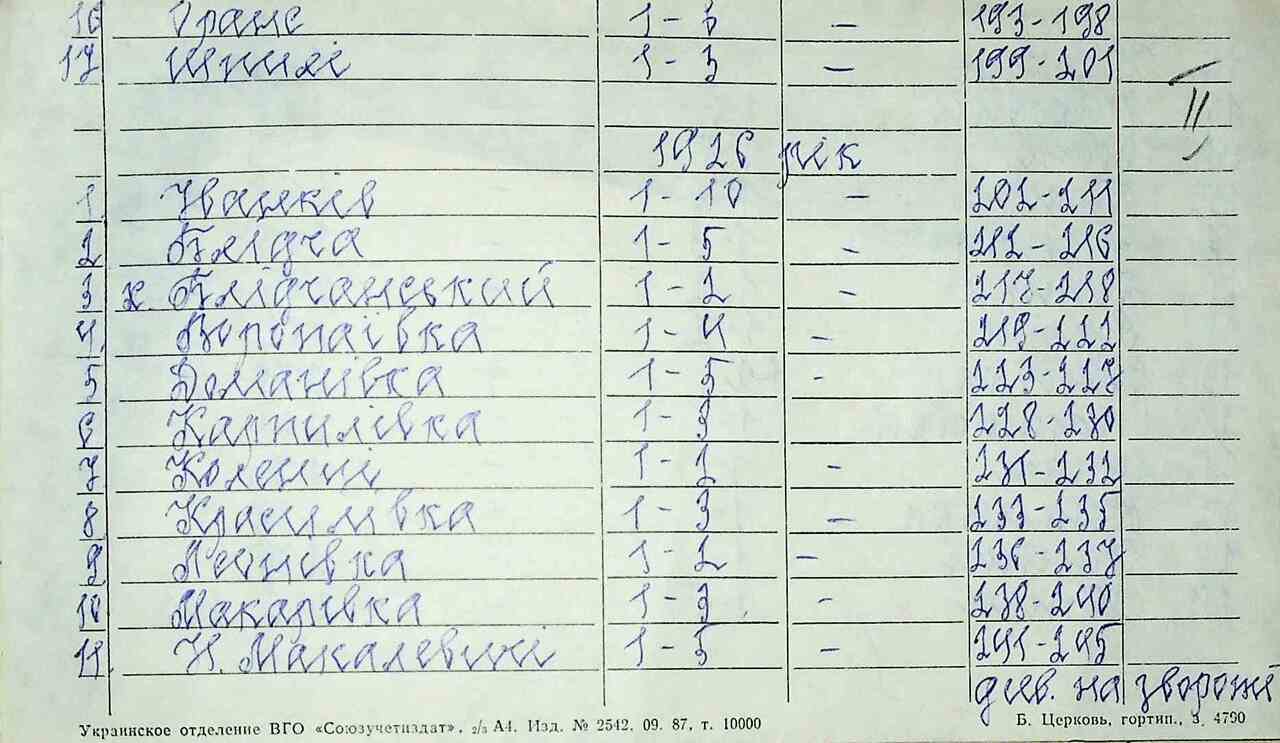 16 Орапе 1-6 — 193-198
17 Шпилі 1-3 — 199-201
II
1926 рік
1. Івацків 1-10 — 202-211
2 Блідча 1-5 — 212-216
3 х. Блідчанський 1-2 — 217-218
4. Воропаївка 1-4 - 219-222
5 Доманівка 1-5 - 223-227
6 Карпилівка 1-3 228-230
7 Коленці 1-2 - 231-232
8 Красилівка 1-3 — 233-235
9 Леонівка 1-2 — 236-237
10 Макарівка 1-3 - 238-240
11. Н. Макалевичі 1-5 - 241-245
див. на звороті
Украинское отделение ВГО «Союзучетиздат». 2/3 А4. Изд. № 2542. 09. 87. т. 10000
Б. Церковь, гортип., З. 4790